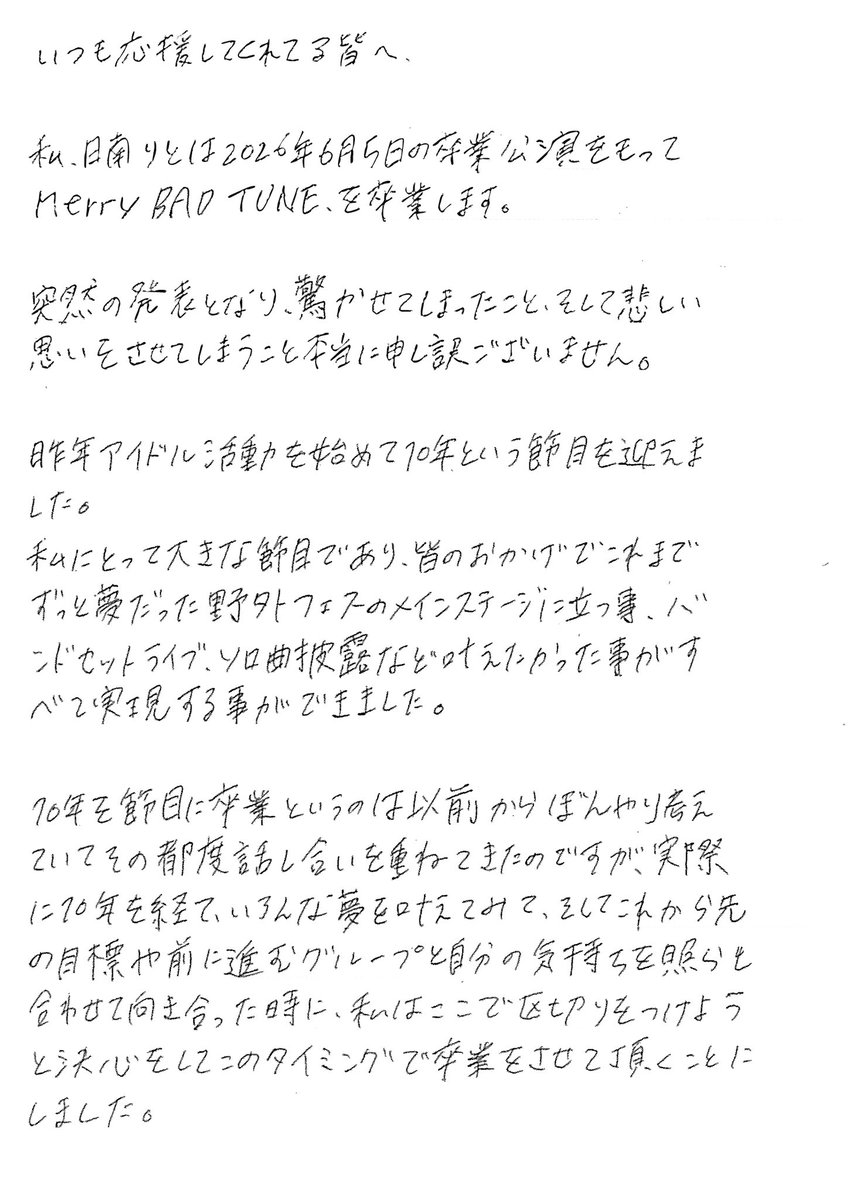 いつも応援してくれてる皆へ、
私、日南りとは2026年6月5日の卒業公演をもって
Merry BAD TUNE、を卒業します。
突然の発表となり、驚かせてしまったこと、そして悲しい
思いをさせてしまうこと本当に申し訳ございません。
昨年アイドル活動を始めて10年という節目を迎えま
した。
私にとって大きな節目であり、皆のおかげでこれまで
ずっと夢だった野外フェスのメインステージに立つ事、バ
ンドセットライブ、ソロ曲披露など叶えたかった事がす
べて実現する事ができました。
10年を節目に卒業というのは以前からぼんやり考え
ていてその都度話し合いを重ねてきたのですが、実際
に10年を経て、いろんな夢を叶えてみて、そしてこれから先
の目標や前に進むグループと自分の気持ちを照らし
合わせて向き合った時に、私はここで区切りをつけよう
と決心をしてこのタイミングで卒業をさせて頂くことに
しました。